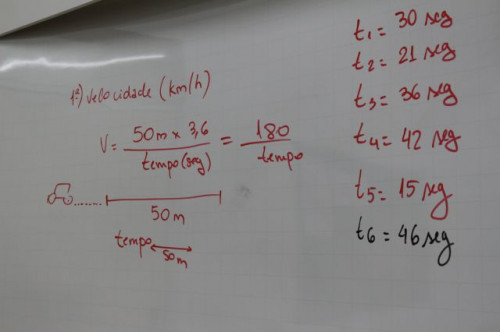 1º) Velocidade (km/h)
V = 50m x 3,6 / tempo (seg) = 180 / tempo
50 m
tempo
50m
t1 = 30 seg
t2 = 21 seg
t3 = 36 seg
t4 = 42 seg
t5 = 15 seg
t6 = 46 seg